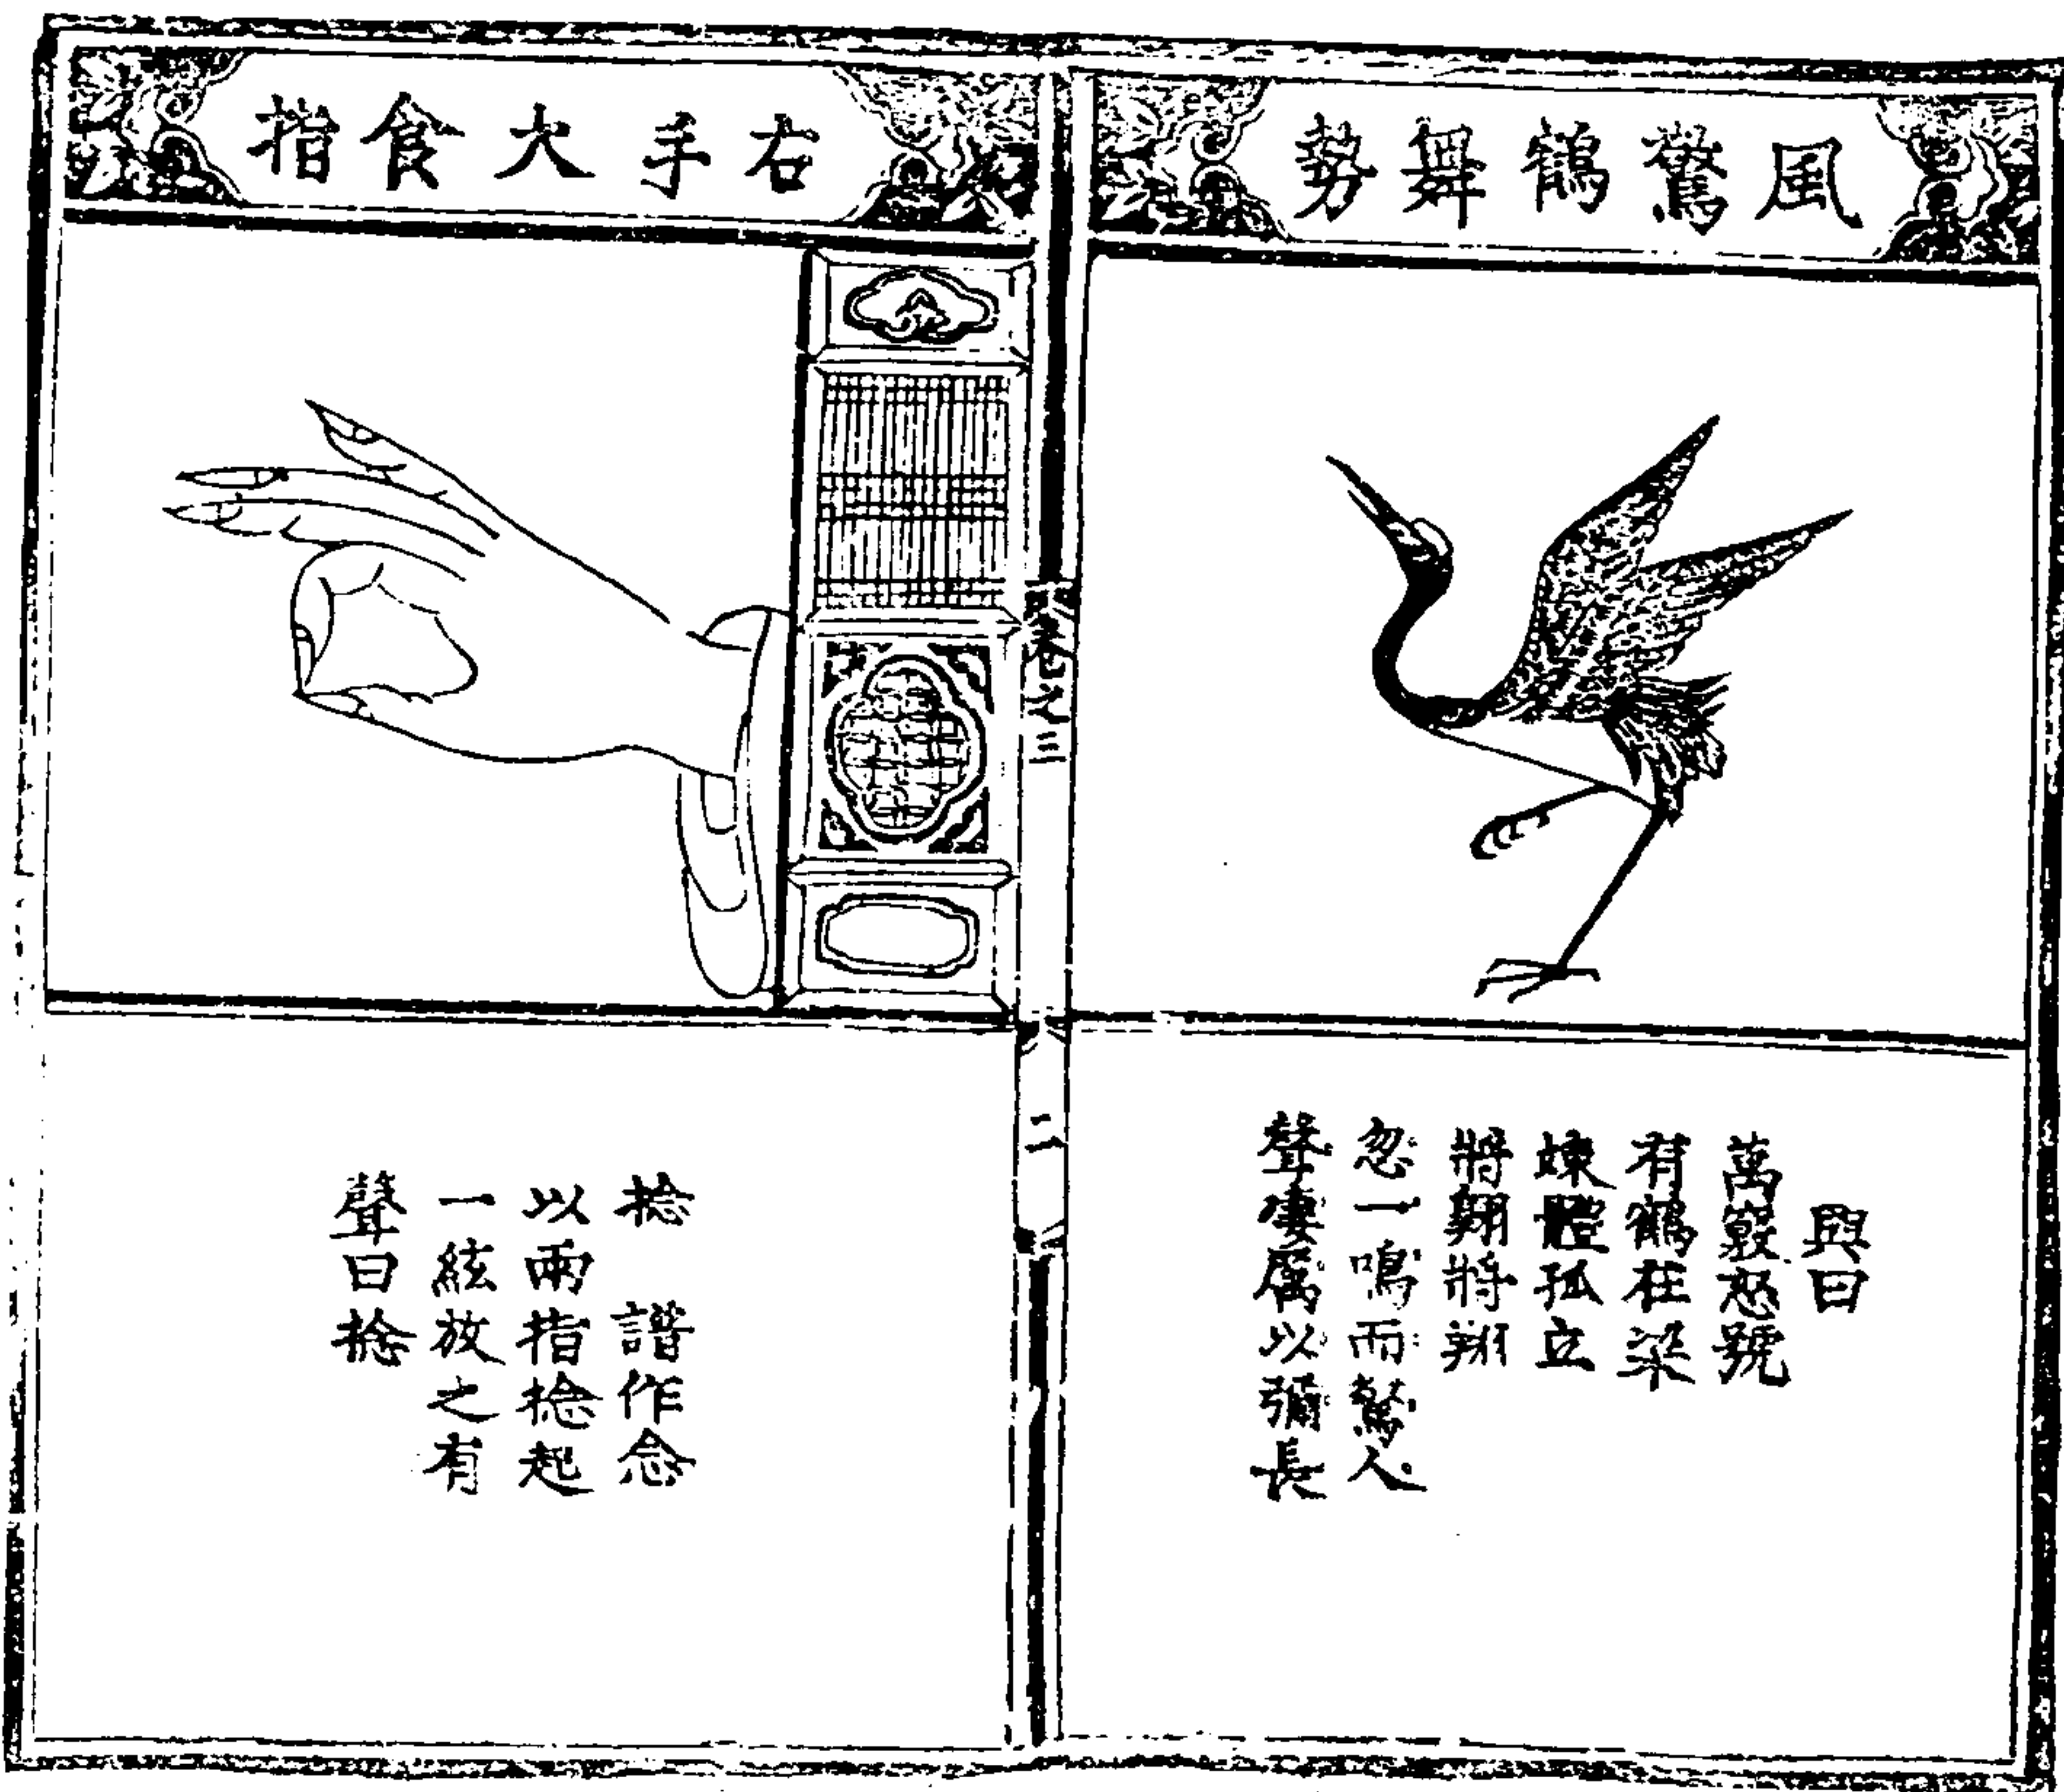 風驚鶴舞勢
興曰
萬竅怒號
有鶴在梁
竦體孤立
將翺將翔
忽一鳴而驚人
聲淒厲以彌長
卷之三
二
右手大食指
捻 譜作念
以兩指捻起
一絃放之有
聲曰捻